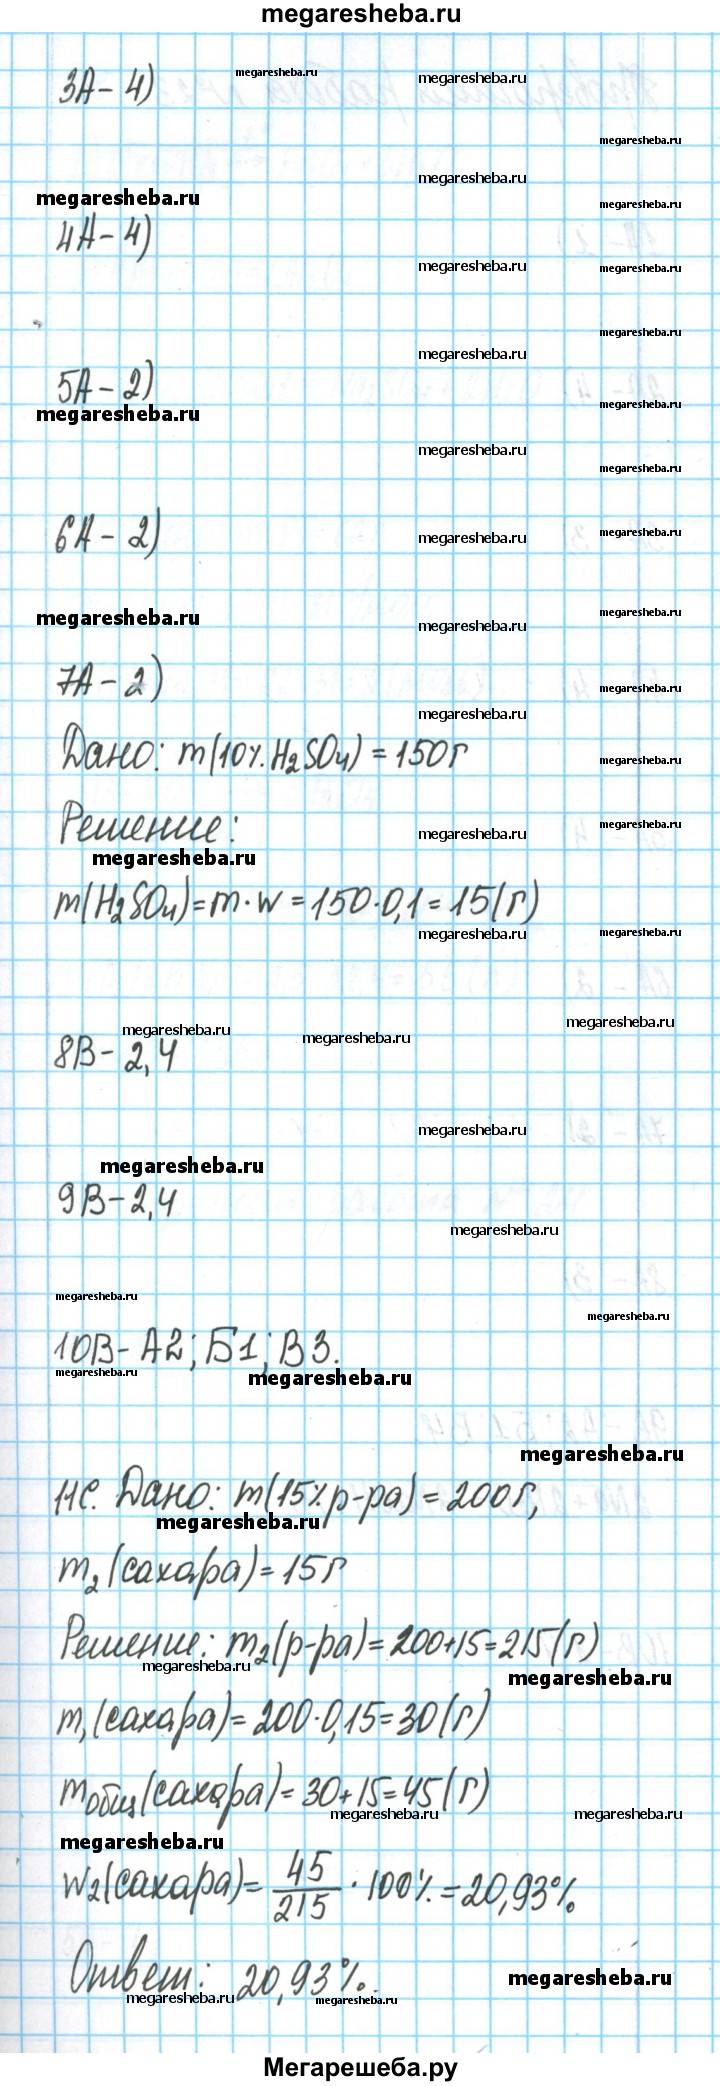 megaresheba.ru
3А - 4)
4А - 4)
5А - 2)
6А - 2)
7А - 2)
Дано: m(10%. H₂SO₄) = 150г
Решение:
m(H₂SO₄) = m · w = 150 · 0,1 = 15(г)
8В - 2,4
9В - 2,4
10В - А2; Б1; В3.
11С. Дано: m(15% р-ра) = 200г,
m₂(сахара) = 15г
Решение: m₂(р-ра) = 200+15 = 215(г)
m₁(сахара) = 200 · 0,15 = 30(г)
mобщ(сахара) = 30+15 = 45(г)
w₂(сахара) = 45/215 · 100% = 20,93%
Ответ: 20,93%.
Мегарешеба.ру